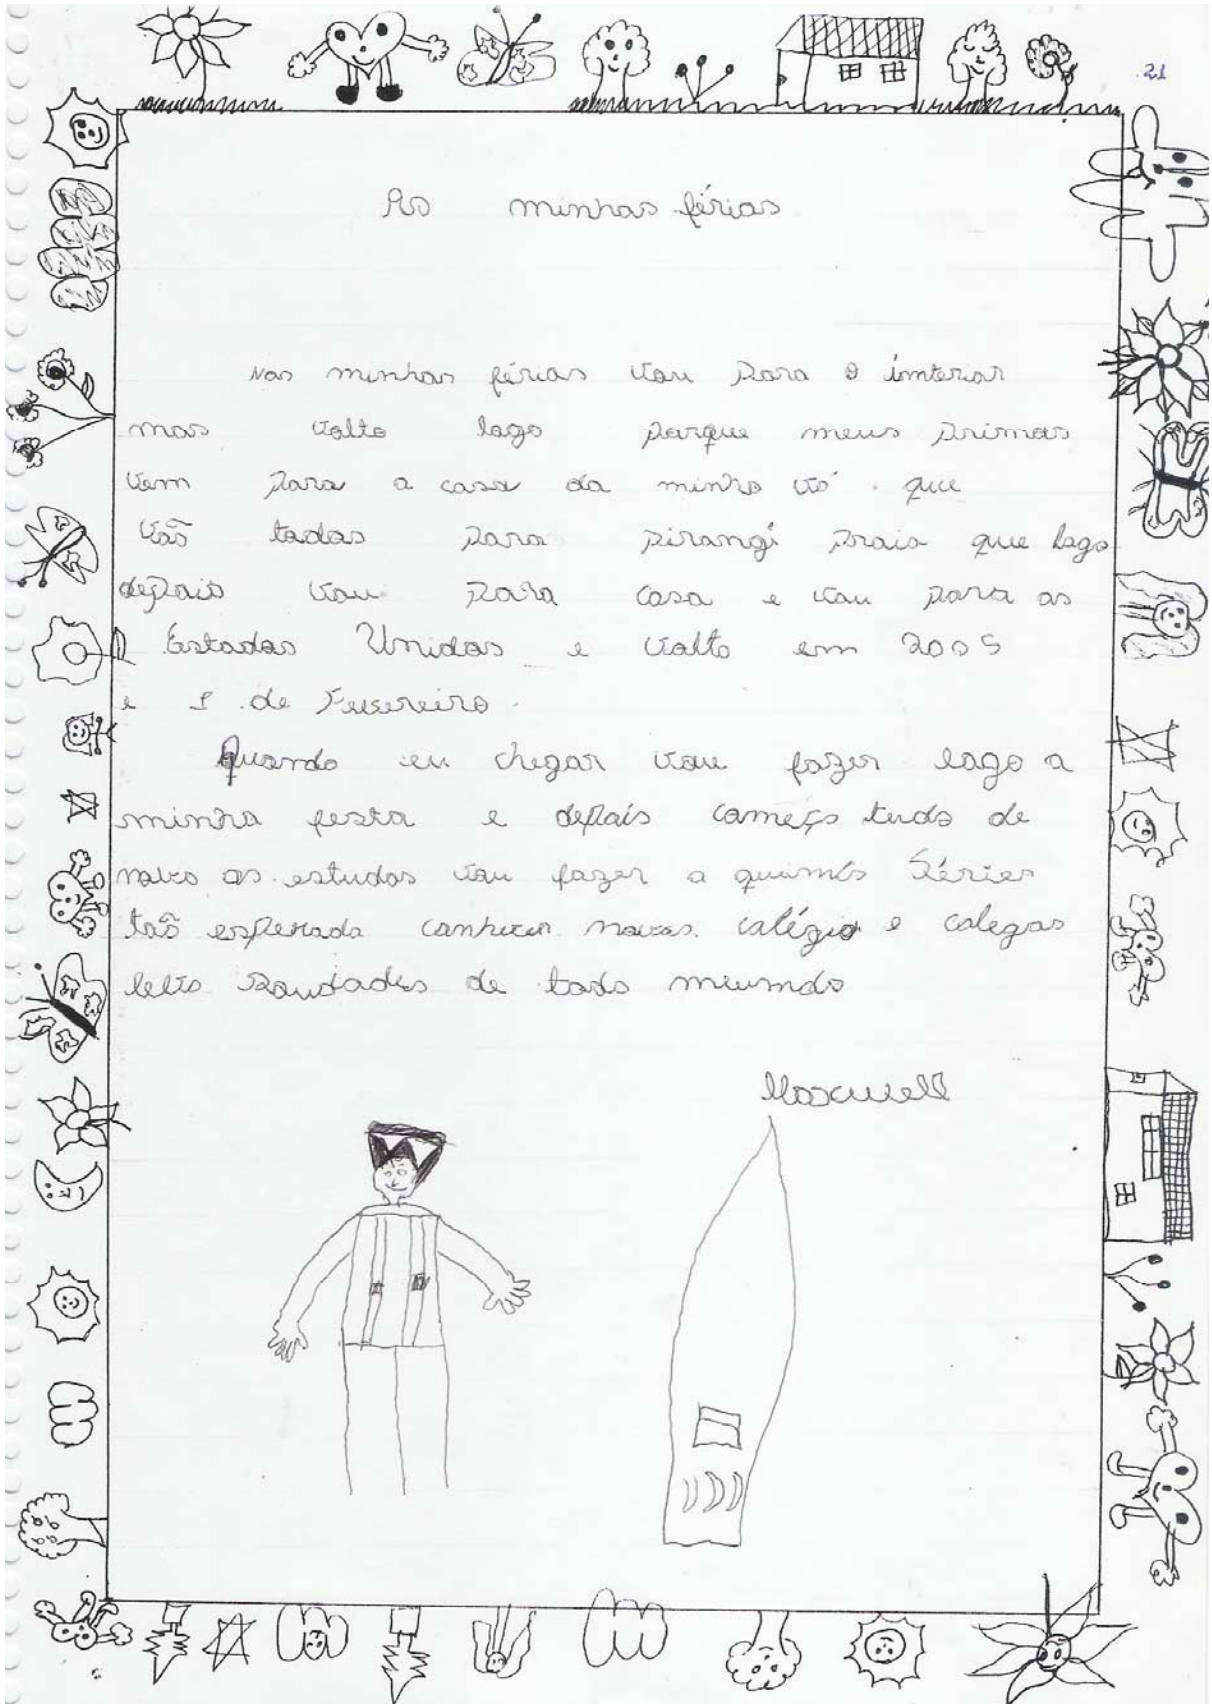 21
As minhas férias
Nas minhas férias vou para o imterior
mas volto logo porque meus primos
vem para a casa da minha vó. que
vão todos para pirangi praia que logo
depois vou para casa e vou para os
Estados Unidos e volto em 2005
e 1 de Fevereiro.
Quando eu chegar vou fazer logo a
minha festa e depois começo tudo de
novo os estudos vou fazer a Séries
tão esperada conhecer novos colégio e colegas
levo saudades de todo
Maxwell